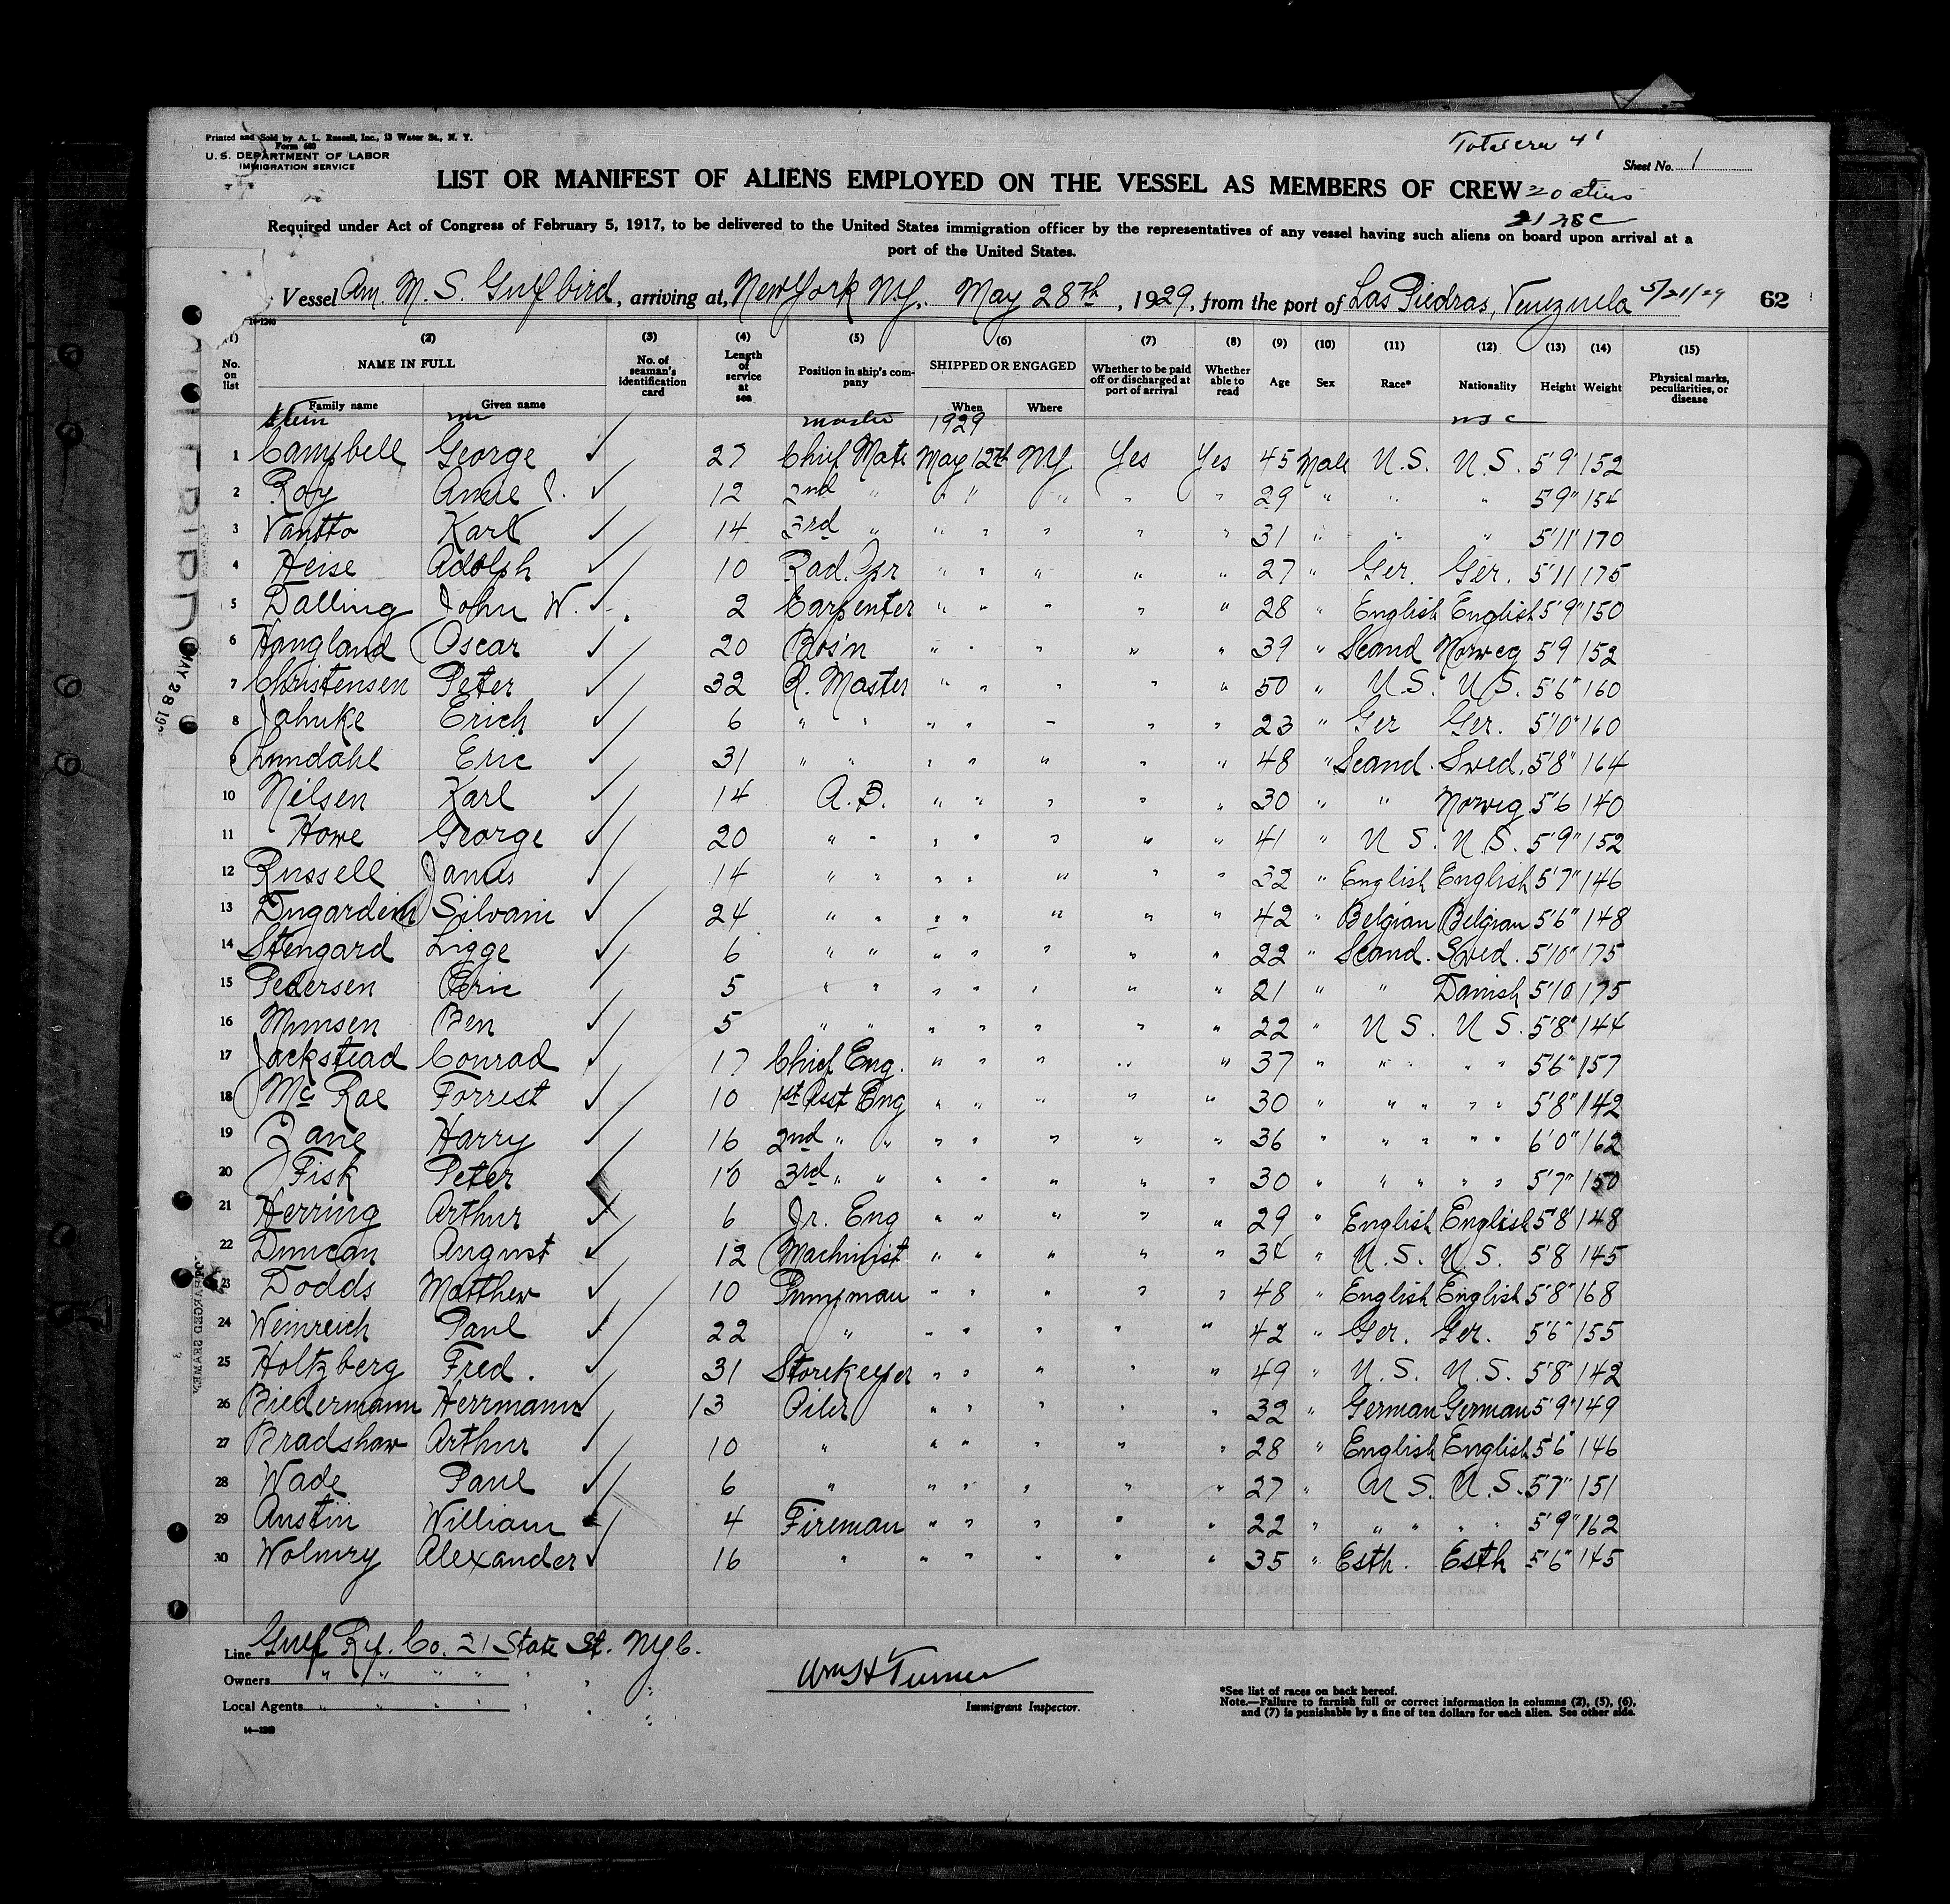 Printed and Sold by A. L. Russell, Inc., 13 Water St., N. Y.
Form 680
U. S. DEPARTMENT OF LABOR
IMMIGRATION SERVICE
Total crew 41
Sheet No. 1
LIST OR MANIFEST OF ALIENS EMPLOYED ON THE VESSEL AS MEMBERS OF CREW 20 aliens
21 USC
Required under Act of Congress of February 5, 1917, to be delivered to the United States immigration officer by the representatives of any vessel having such aliens on board upon arrival at a
port of the United States.
Vessel Am. M. S. Gulfbird, arriving at, New York N.Y. May 28th, 1929, from the port of Las Piedras, Venezuela 5/21/29 62
14-1240
(1) (2) (3) (4) (5) (6) (7) (8) (9) (10) (11) (12) (13) (14) (15)
No. on list NAME IN FULL No. of seaman's identification card Length of service at sea Position in ship's company SHIPPED OR ENGAGED Whether to be paid off or discharged at port of arrival Whether able to read Age Sex Race* Nationality Height Weight Physical marks, peculiarities, or disease
Family name Given name When Where
master 1929 usc
1 Campbell George ✓ 27 Chief Mate May 12th NY. Yes Yes 45 Male U.S. U.S. 5'9" 152
2 Roy ✓ 12 2nd " " " " " " 29 " " " 5'9" 154
3 Vantto Karl ✓ 14 3rd " " " " " " 31 " " " 5'11" 170
4 Heise Adolph ✓ 10 Rad. Opr " " " " " 27 " Ger. Ger. 5'11 175
5 Dalling John W. ✓ 2 Carpenter " " " " " 28 " English English 5'9" 150
6 Hangland Oscar ✓ 20 Bos'n " " " " " 39 " Scand Norweg 5'9 152
7 Christensen Peter ✓ 32 Q. Master " " " " " 50 " U.S. U.S. 5'6" 160
8 Jahnke Erich ✓ 6 " " " " " " " 23 " Ger Ger. 5'10" 160
9 Lundahl Eric ✓ 31 " " " " " " " 48 " Scand. Swed. 5'8" 164
10 Nilsen Karl ✓ 14 A.B. " " " " " 30 " " Norweg 5'6 140
11 Howe George ✓ 20 " " " " " " " 41 " U S. U.S. 5'9" 152
12 Russell James ✓ 14 " " " " " " " 32 " English English 5'7" 146
13 Dugardein Silvain ✓ 24 " " " " " " " 42 " Belgian Belgian 5'6" 148
14 Stengard Sigge ✓ 6 " " " " " " " 22 " Scand. Swed. 5'10" 175
15 Pedersen Eric ✓ 5 " " " " " " " 21 " " Danish 5'10 175
16 Munsen Ben ✓ 5 " " " " " " " 22 " U S. U S. 5'8" 144
17 Jackstead Conrad ✓ 17 Chief Eng. " " " " " 37 " " " " " 5'6" 157
18 McRae Forrest ✓ 10 1st Asst Eng " " " " " 30 " " " " " 5'8" 142
19 Zane Harry ✓ 16 2nd " " " " " " " 36 " " " " " 6'0" 162
20 Fisk Peter ✓ 10 3rd " " " " " " " 30 " " " " " 5'7" 150
21 Herring Arthur ✓ 6 Jr. Eng " " " " " 29 " English English 5'8" 148
22 Duncan August ✓ 12 Machinist " " " " " 34 " U.S. U.S. 5'8 145
23 Dodds Matthew ✓ 10 Pumpman " " " " " 48 " English English 5'8" 168
24 Weinreich Paul ✓ 22 " " " " " " 42 " Ger. Ger. 5'6" 155
25 Holtzberg Fred. ✓ 31 Storekeeper " " " " " 49 " U.S. U.S. 5'8" 142
26 Biedermann Herrmann ✓ 13 Oiler " " " " " 32 " German German 5'9" 149
27 Bradshaw Arthur ✓ 10 " " " " " " 28 " English English 5'6" 146
28 Wade Paul ✓ 6 " " " " " " 27 " U S. U.S. 5'7" 151
29 Austin William ✓ 4 Fireman " " " " " 22 " " " " " 5'9" 162
30 Wolmry Alexander ✓ 16 " " " " " " 35 " Esth. Esth 5'6" 145
MAY 28 19
Line Gulf Rf. Co. 21 State St. NYC.
Owners " " " " " " "
Local Agents " " " " " " "
14-1240
Wm H Turner
Immigrant Inspector.
*See list of races on back hereof.
Note.—Failure to furnish full or correct information in columns (2), (5), (6),
and (7) is punishable by a fine of ten dollars for each alien. See other side.